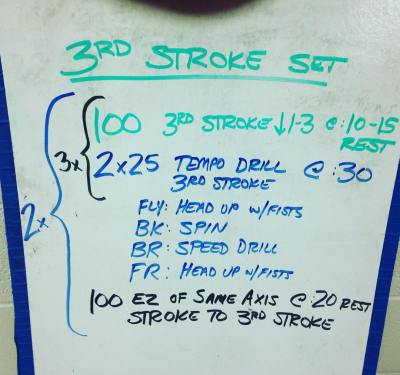 3RD STROKE SET
100 3RD STROKE ↓1-3 @ :10-15
REST
3x
2x25 TEMPO DRILL @ :30
3RD STROKE
2x
FLY: HEAD UP W/FISTS
BK: SPIN
BR: SPEED DRILL
FR: HEAD UP W/FISTS
100 EZ OF SAME AXIS @ :20 REST
STROKE TO 3RD STROKE